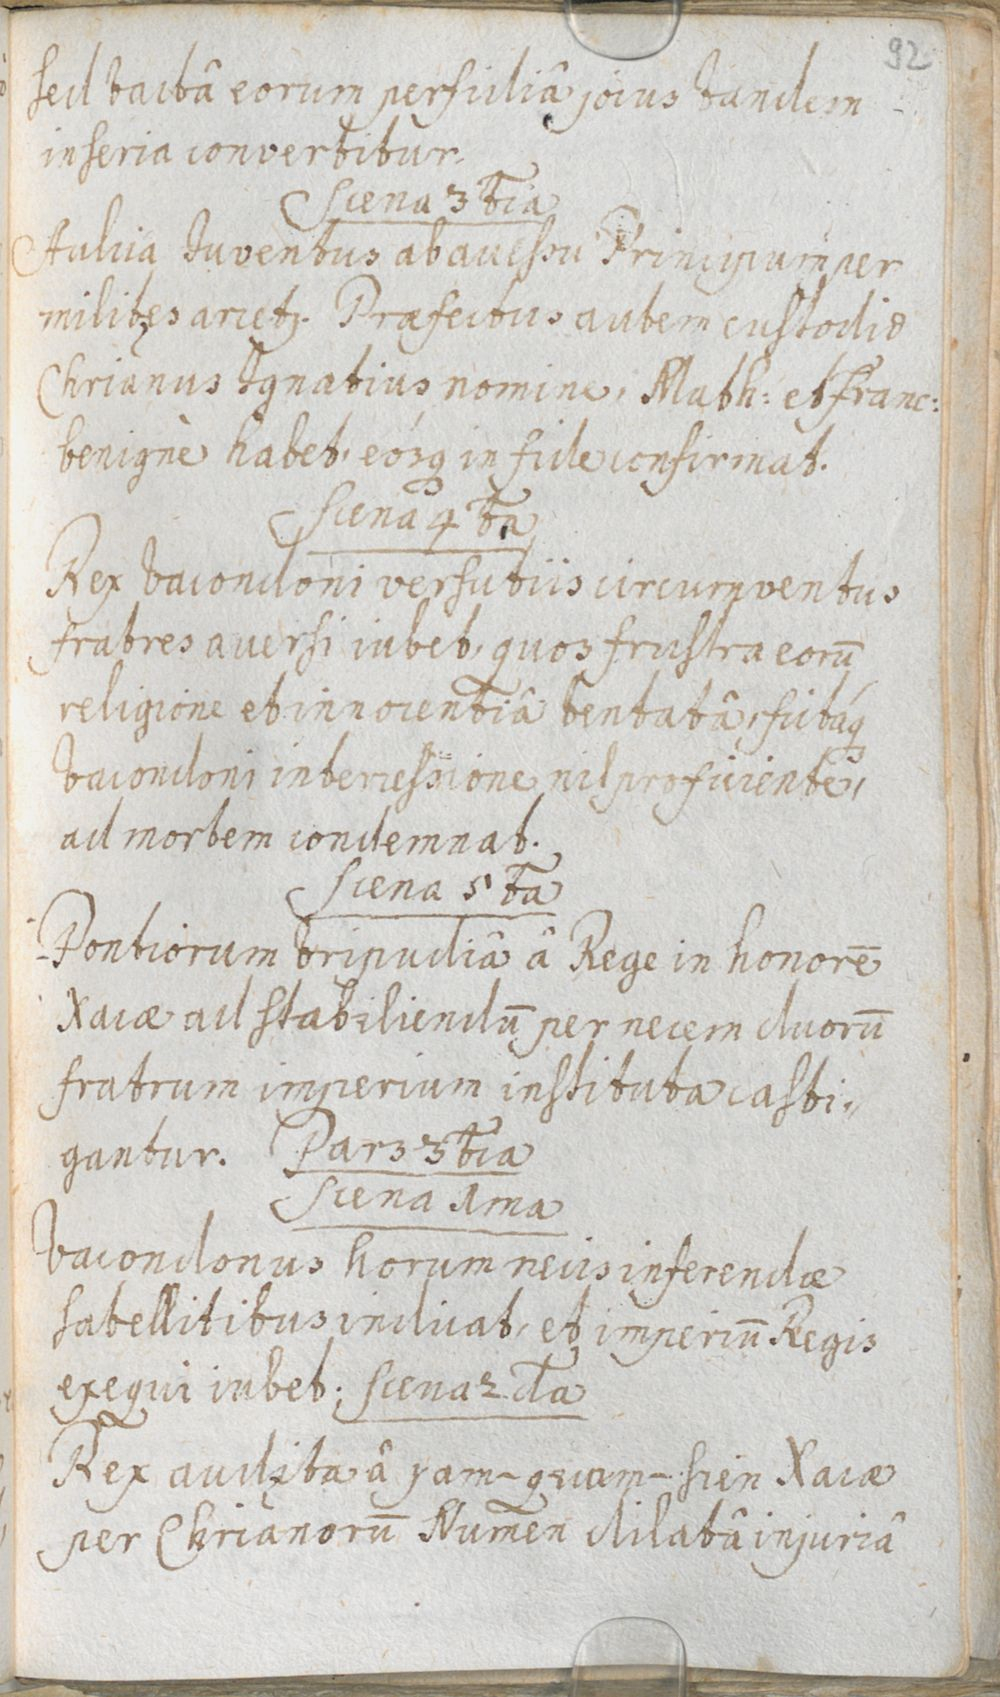 92
sed tactâ eorum perfidiâ jocus tandem
in seria convertitur.
Scena 3 tia
Aulica Juventus ab aucessu Principum per
milites arcetr. Præfectus autem custodiæ
Chrianus Ignatius nomine, Math: et Franc:
benignè habet, eósq in fide confirmat.
Scena 4 ta
Rex Tacondoni versutiis circumventus
fratres aversi iubet, quos frustra eorū
religione et innocentiâ tentatâ, fictáq
Tacondoni intercessione nil proficiente,
ad mortem condemnat.
Scena 5 ta
Pontiorum tripudiâ â Rege in honorē
Xacæ ad stabiliendū per necem duorū
fratrum imperium instituta casti-
gantur. Pars 3 tia
Scena 1ma
Tacondonus horum necis inferendæ
satellitibus indicat, et imperiū Regis
exequi iubet. Scena 2. da
Rex audita â yam-quam-sien Xacæ
per Chrianorū Numen dilatâ injuriâ